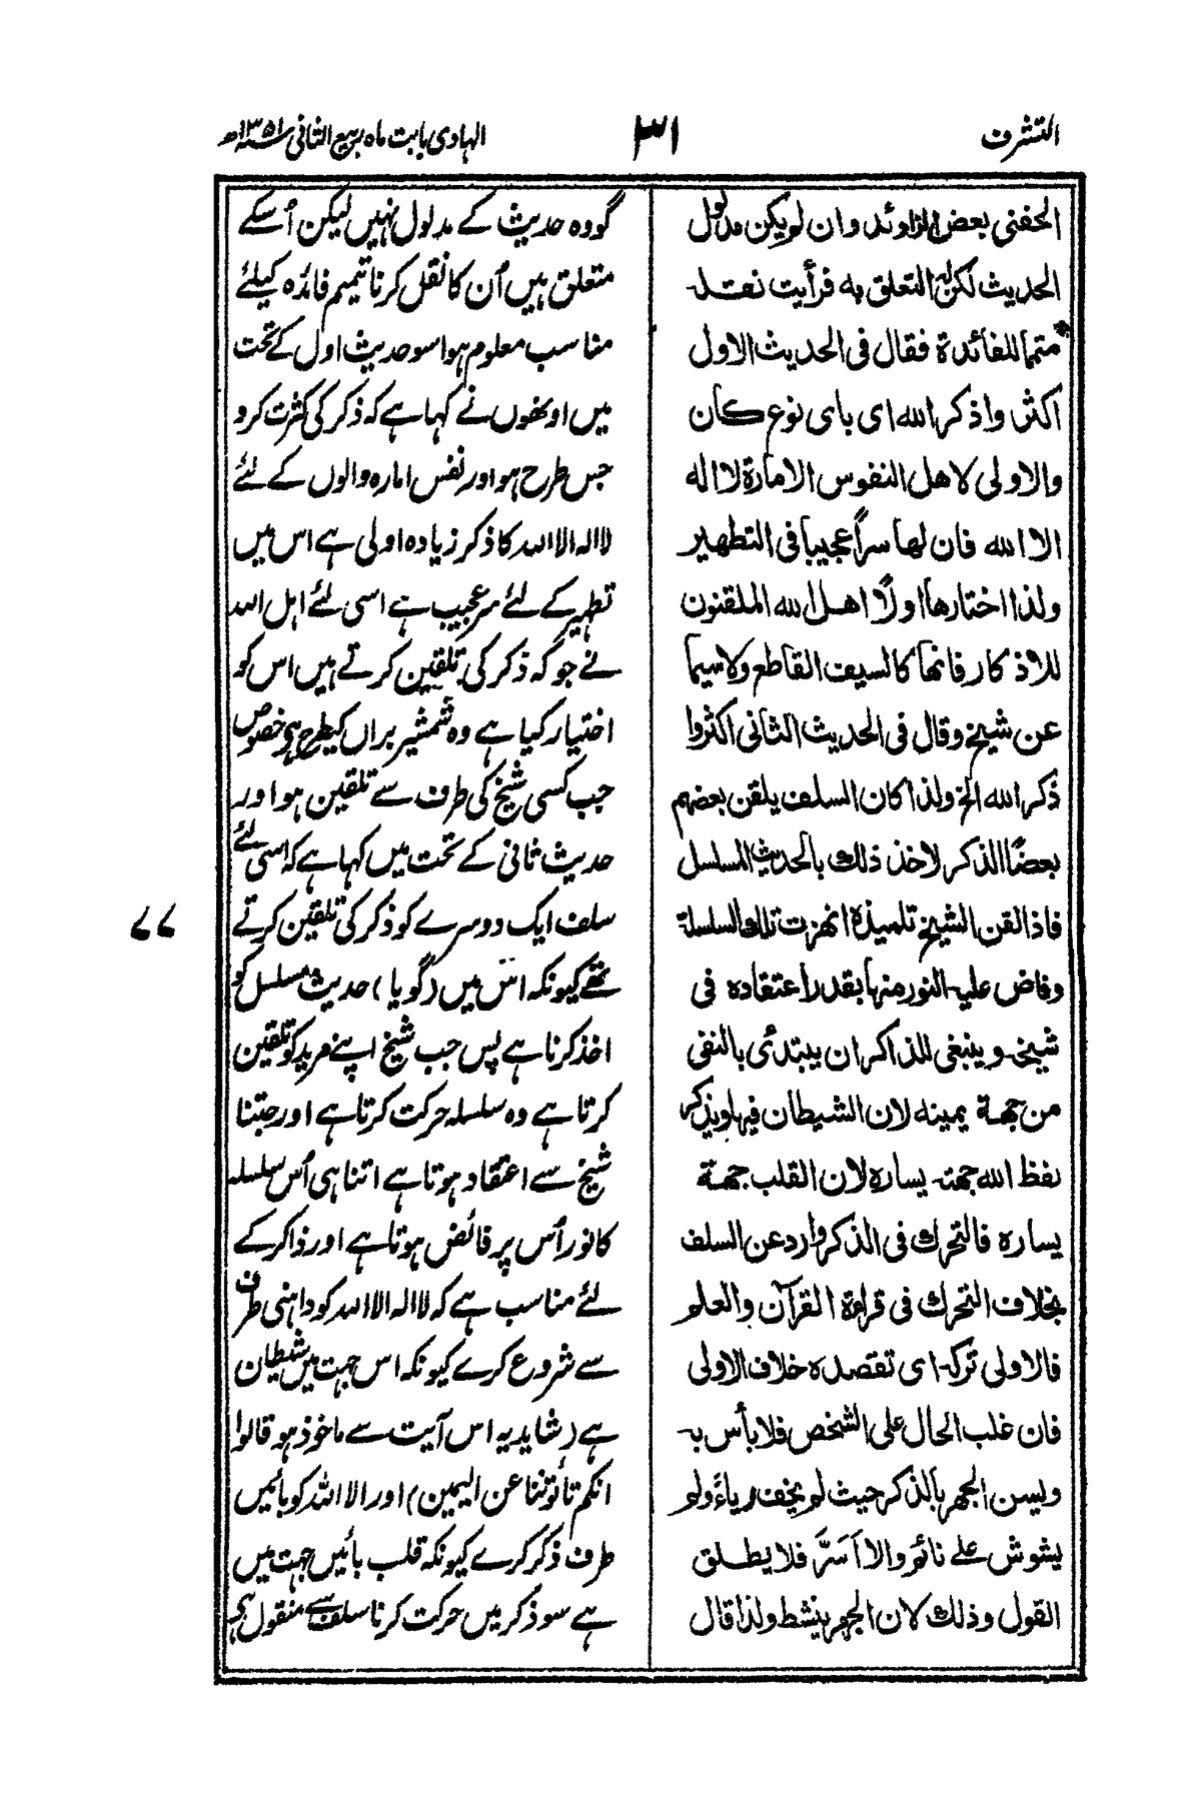 التشرف
۳۱
الہادی بابت ماہ ربیع الثانی ۱۳۵۱ھ
الحفنی بعض الزاوئد وان لم یکن مدلول
الحدیث لکن لہ التعلق بہ فرأیت نقلہ
متمما للفائدۃ فقال فی الحدیث الاول
اکثروا ذکر اللہ ای بای نوع کان
والاولی لاهل النفوس الامارۃ لا الہ
الا اللہ فان لها سراً عجیبا فی التطهیر
ولذا اختارها اولاً اهل اللہ الملقنون
للاذکار فانها کالسیف القاطع ولاسیما
عن شیخ وقال فی الحدیث الثانی اکثروا
ذکر اللہ الخ ولذا کان السلف یلقن بعضهم
بعضًا الذکر لاخذ ذلک بالحدیث المسلسل
فاذا لقن الشیخ تلمیذہ انهزت تلک السلسلۃ
وفاض علیہ النور منها بقدر اعتقادہ فی
شیخہ وینبغی للذاکر ان یبتدئ بالنفی
من جهۃ یمینہ لان الشیطان فیها ویذکر
لفظ اللہ جهۃ یسارہ لان القلب جهۃ
یسارہ فالتحرک فی الذکر وارد عن السلف
بخلاف التحرک فی قراءۃ القرآن والعلم
فالاولی ترکہ ای تقصدہ خلاف الاولی
فان غلب الحال علی الشخص فلا بأس بہ
ویسن الجهر بالذکر حیث لم یخف ریاءً ولم
یشوش علی نائم والا اَسَرَّ فلا یطلق
القول وذلک لان الجهر ینشط ولذا قال
گو وہ حدیث کے مدلول نہیں لیکن اُسکے
متعلق ہیں اُن کا نقل کرنا تتمیم فائدہ کیلئے
مناسب معلوم ہوا سو حدیث اول کے تحت
میں اونھوں نے کہا ہے کہ ذکر کی کثرت کرو
جس طرح ہو اور نفس امارہ والوں کے لئے
لا الہ الا اللہ کا ذکر زیادہ اولی ہے اس میں
تطہیر کے لئے سر عجیب ہے اسی لئے اہل اللہ
نے جو کہ ذکر کی تلقین کرتے ہیں اس کو
اختیار کیا ہے وہ شمشیر براں کیطرح ہی خصوص
جب کسی شیخ کی طرف سے تلقین ہو اور
حدیث ثانی کے تحت میں کہا ہے کہ اسی لئے
سلف ایک دوسرے کو ذکر کی تلقین کرتے
تھے کیونکہ اس میں (گویا) حدیث مسلسل کو
اخذ کرنا ہے پس جب شیخ اپنے مرید کو تلقین
کرتا ہے وہ سلسلہ حرکت کرتا ہے اور جتنا
شیخ سے اعتقاد ہوتا ہے اتنا ہی اُس سلسلہ
کا نور اُس پر فائض ہوتا ہے اور ذاکر کے
لئے مناسب ہے کہ لا الہ الا اللہ کو داہنی طرف
سے شروع کرے کیونکہ اس جہت میں شیطان
ہے (شاید یہ اس آیت سے ماخوذ ہو قالوا
انکم تأتوننا عن الیمین) اور الا اللہ کو بائیں
طرف ذکر کرے کیونکہ قلب بائیں جہت میں
ہے سو ذکر میں حرکت کرنا سلف سے منقول ہی
۷۷